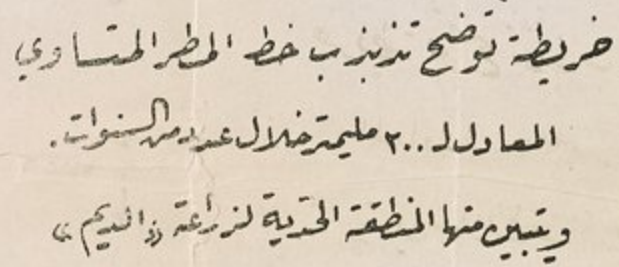 خريطة توضح تذبذب خط المطر المتساوي
المعادل لـ ٢٠٠ مليمتر خلال عدد من السنوات.
ويتبين منها المنطقة الحدية لزراعة «الديم»